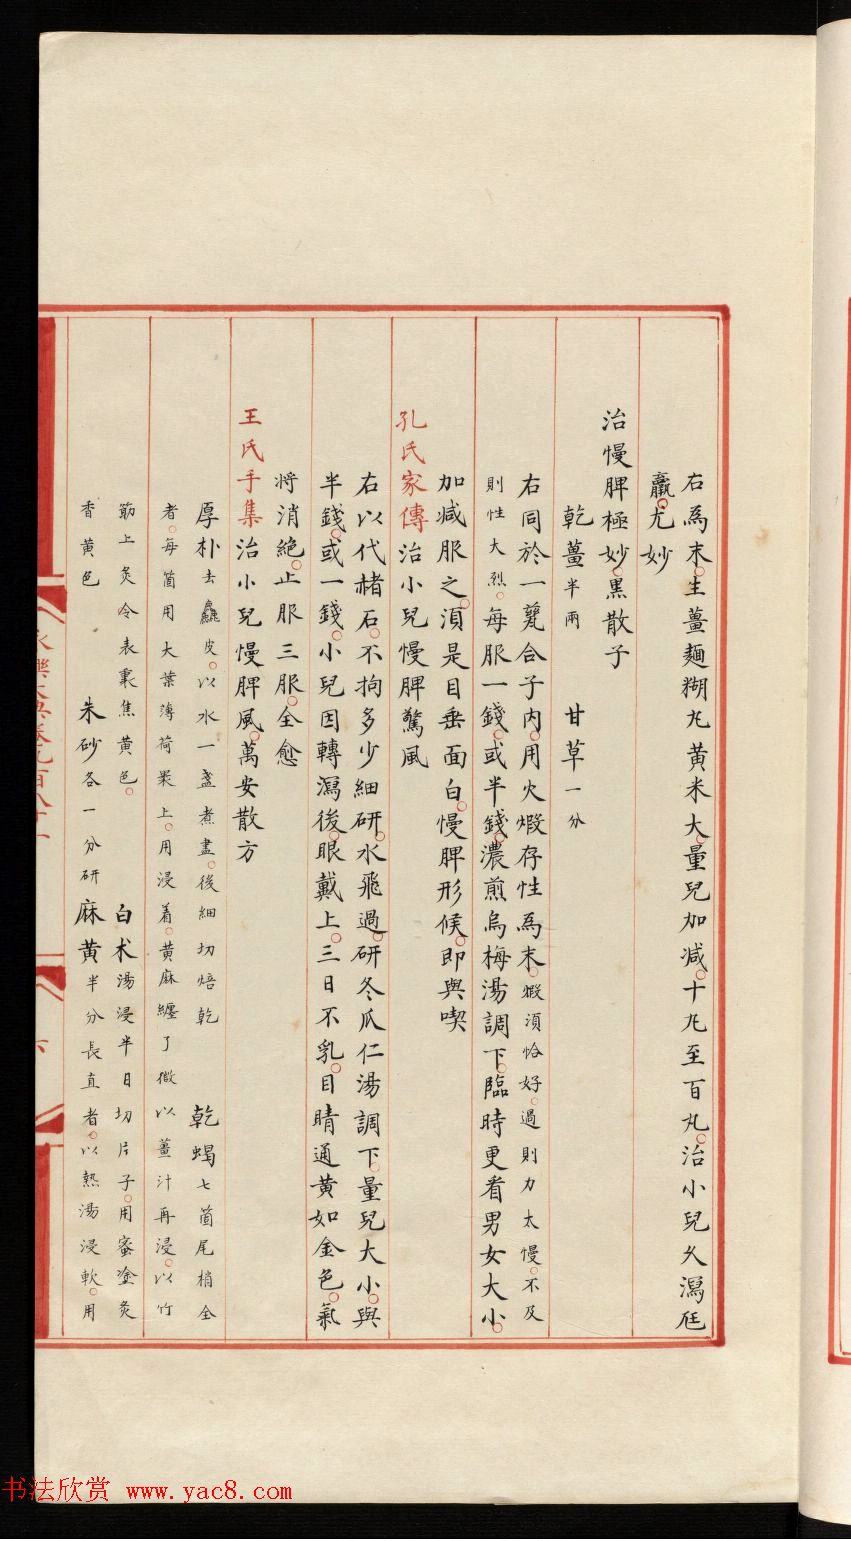 右爲末。生薑麵糊丸黄米大。量兒加減。十丸至百丸。治小兒久瀉尪
羸。尤妙
治慢脾極妙。黒散子
乾薑半兩 甘草一分
右同於一甆合子内。用火煅存性爲末。煅湏恰好。過則力太慢。不及
則性大烈。每服一錢。或半錢。濃煎烏梅湯調下。臨時更看男女大小。
加减服之。湏是目垂面白。慢脾形候。即與喫
孔氏家傳治小兒慢脾驚風
右以代赭石。不拘多少細研。水飛過。研冬瓜仁湯調下。量兒大小。與
半錢。或一錢。小兒因轉瀉後。眼戴上。三日不乳。目睛通黄如金色。氣
将消絶。止服三服。全愈
王氏手集治小兒慢脾風。萬安散方
厚朴去麤皮。以水一盞煮盡。後細切焙乾 乾蝎七箇尾梢全
者。每箇用大葉薄荷裹上。用浸着。黄麻纏了微以薑汁再浸。以竹
筋上炙令表裏焦黄色。 白术湯浸半日切片子。用蜜塗炙
香黄色 朱砂各一分研 麻黄半分長直者。以熱湯浸軟。用
永樂大典卷九百八十一
六
书法欣赏 www.yac8.com